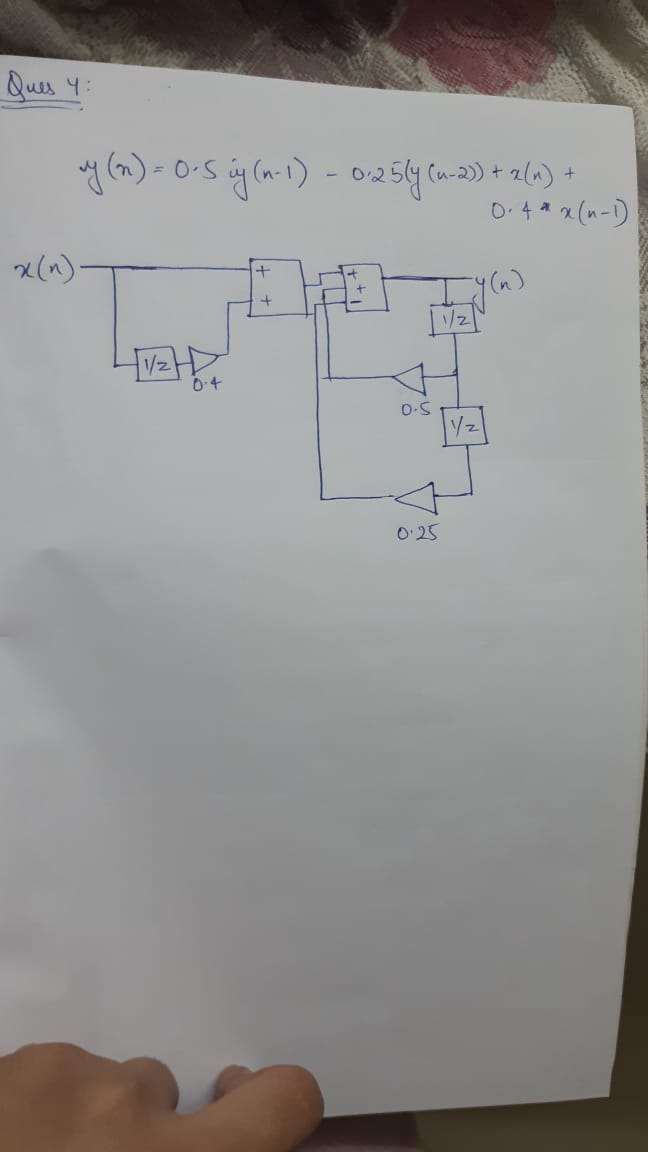 Ques 4:
y(n) = 0.5 y(n-1) - 0.25(y(n-2)) + x(n) +
0.4 * x(n-1)
x(n)
+
+
+
+
-
y(n)
1/z
1/z
0.4
0.5
1/z
0.25